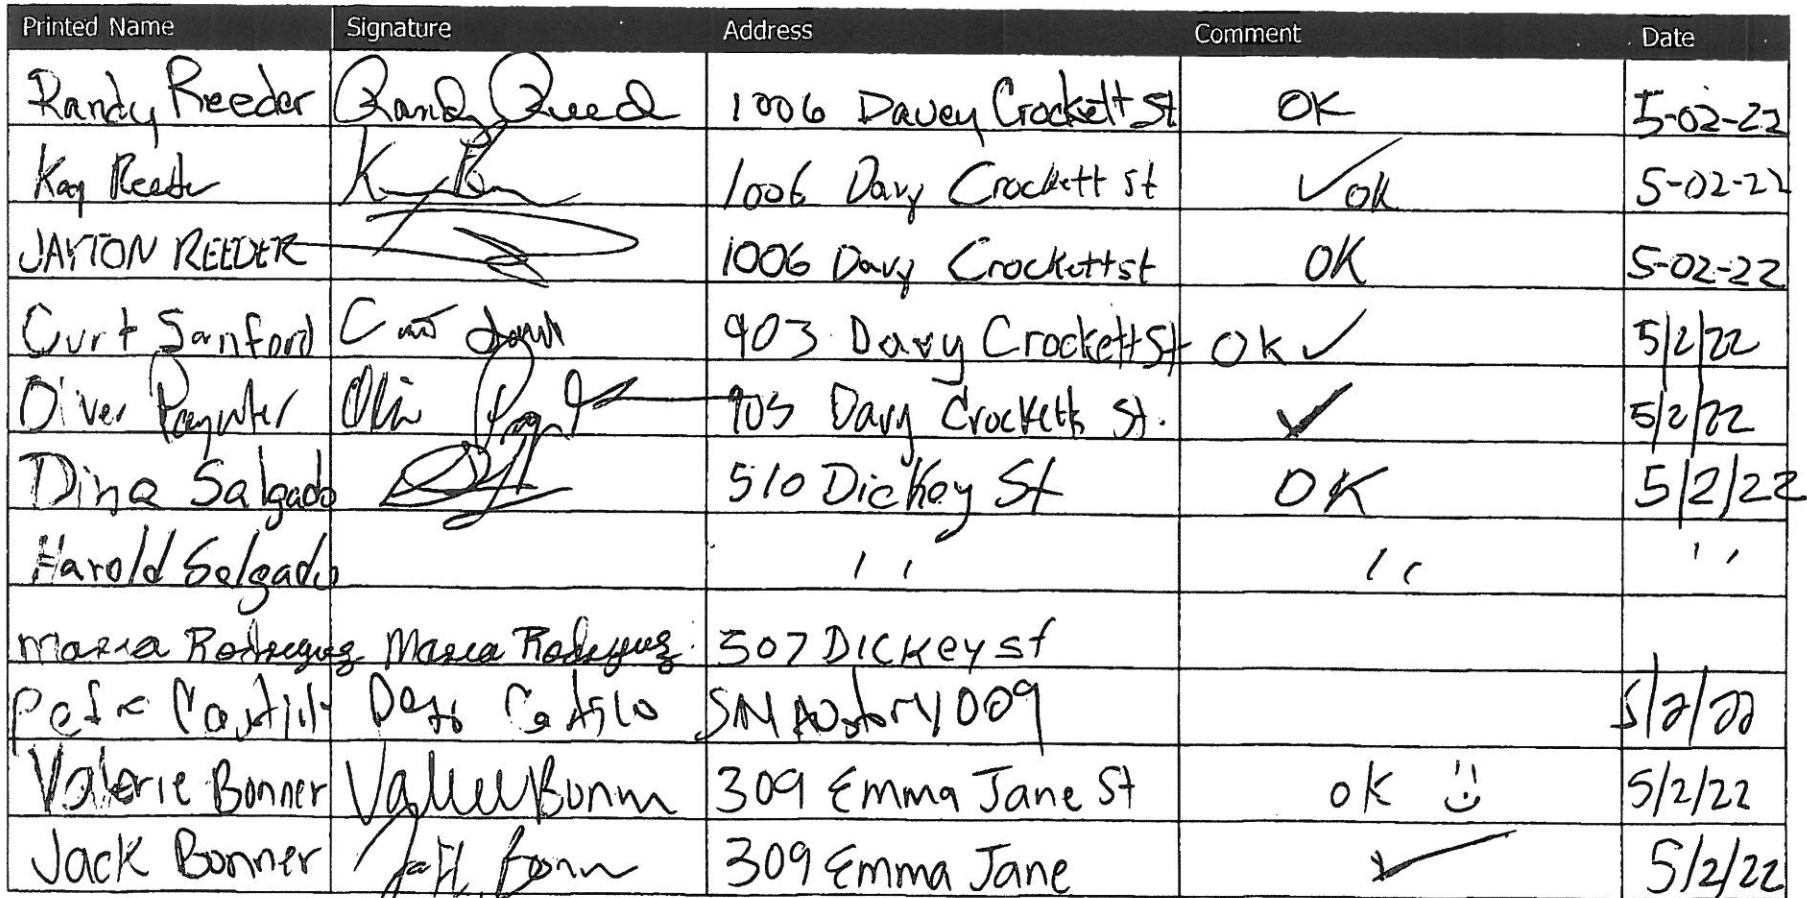 Printed Name Signature Address Comment Date
Randy Reeder Randy Reed 1006 Davey Crockett St OK 5-02-22
Kay Reeder 1006 Davy Crockett st ✓OK 5-02-22
JAYTON REEDER 1006 Davy Crockett st OK 5-02-22
Curt Sanford Curt 903 Davy Crockett St Ok ✓ 5/2/22
Oliver Paynter 905 Davy Crockett St. ✓ 5/2/22
Dina Salgado 510 Dickey St OK 5/2/22
Harold Salgado '' '' ''
Maria Rodreguez Maria Rodreguez 507 DICKey st
1009 5/2/22
Valerie Bonner Valerie Bonner 309 Emma Jane St ok 5/2/22
Jack Bonner Jack Bonner 309 Emma Jane ✓ 5/2/22